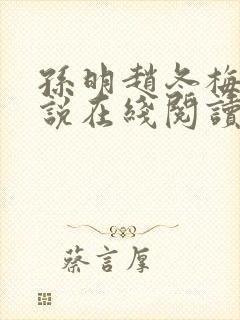 孫明趙冬梅
說在綫閱讀
蔡言厚